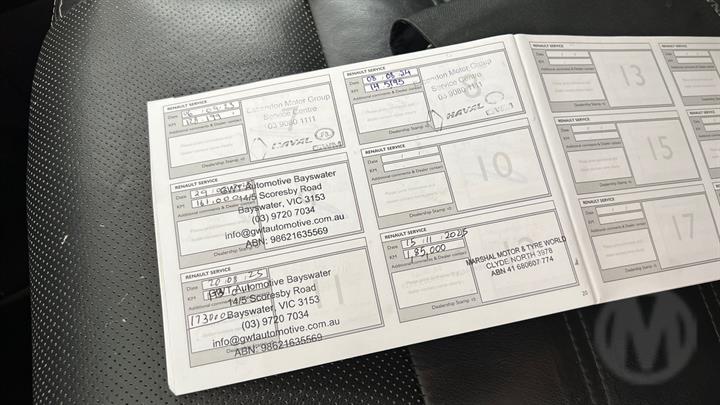 RENAULT SERVICE
Date
KM
Additional comments & Dealer contact
Essendon Motor Group
Service Centre
03 9080 1111
HAVAL
GWM
Dealership Stamp
RENAULT SERVICE
Date 08 . 08 . 24
KM 145195
Additional comments & Dealer contact
Essendon Motor Group
Service Centre
03 9080 1111
HAVAL
GWM
Dealership Stamp
RENAULT SERVICE
Date
KM 161,000
Additional comments & Dealer
GWT Automotive Bayswater
14/5 Scoresby Road
Bayswater, VIC 3153
(03) 9720 7034
info@gwtautomotive.com.au
ABN: 98621635569
Dealership Stamp
RENAULT SERVICE
Date
KM
Additional comments & Dealer contact
10
Dealership Stamp
RENAULT SERVICE
Date 20 . 08 . 25
KM
173000
11
GWT Automotive Bayswater
14/5 Scoresby Road
Bayswater, VIC 3153
(03) 9720 7034
info@gwtautomotive.com.au
ABN: 98621635569
Dealership Stamp
RENAULT SERVICE
Date 15 . 11 . 2025
KM 1,85,000
Additional comments & Dealer
MARSHAL MOTOR & TYRE WORLD
CLYDE NORTH 3978
ABN 41 680607 774
Dealership Stamp
20
RENAULT SERVICE
Date
KM
Additional comments & Dealer contact
13
Dealership Stamp
RENAULT SERVICE
Date
KM
Additional comments & Dealer contact
15
Dealership Stamp
RENAULT SERVICE
Date
KM
Additional comments & Dealer contact
17
Dealership Stamp
RENAULT SERVICE
Date
KM
M